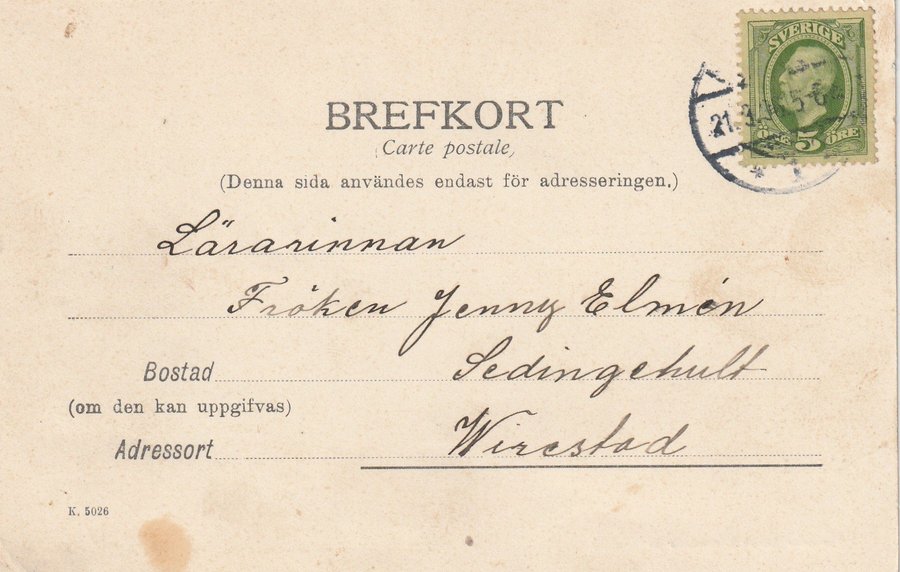 SVERIGE
5
ÖRE
BREFKORT
(Carte postale)
(Denna sida användes endast för adresseringen.)
Lärarinnan
Fröken Jenny Elmén
Bostad Sedingehult
(om den kan uppgifvas)
Adressort Wirestad
K. 5026